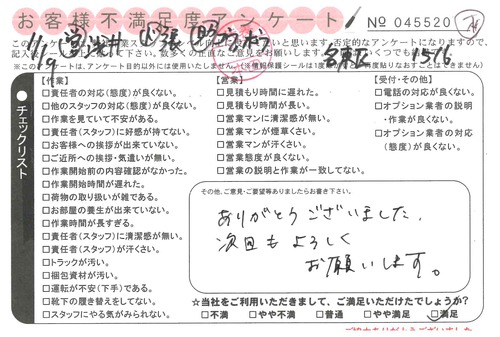 お客様不満足度アンケート
No 045520
11/9
名東区
1516
※このアンケートは、アンケート目的以外には使用いたしません。
チェックリスト
【作業】
□責任者の対応(態度)が良くない。
□他のスタッフの対応(態度)が良くない。
□作業を見ていて不安がある。
□責任者(スタッフ)に好感が持てない。
□お客様への挨拶が出来ていない。
□ご近所への挨拶・気遣いが無い。
□作業開始前の内容確認がなかった。
□作業開始時間が遅れた。
□荷物の取り扱いが雑である。
□お部屋の養生が出来ていない。
□作業時間が長すぎる。
□責任者(スタッフ)に清潔感が無い。
□責任者(スタッフ)が汗くさい。
□トラックが汚い。
□梱包資材が汚い。
□運転が不安(下手)である。
□靴下の履き替えをしてない。
□スタッフにやる気がみられない。
【営業】
□見積もり時間に遅れた。
□見積もり時間が長い。
□営業マンに清潔感が無い。
□営業マンが煙草くさい。
□営業マンが汗くさい。
□営業態度が良くない。
□営業の説明と作業が一致してない。
【受付・その他】
□電話の対応が良くない。
□オプション業者の説明・作業が良くない。
□オプション業者の対応(態度)が良くない。
その他、ご意見・ご要望等ありましたらお書き下さい。
ありがとうございました。
次回もよろしく
お願いします。
☆当社をご利用いただきまして、ご満足いただけたでしょうか?
□不満 □やや不満 □普通 □やや満足 □満足